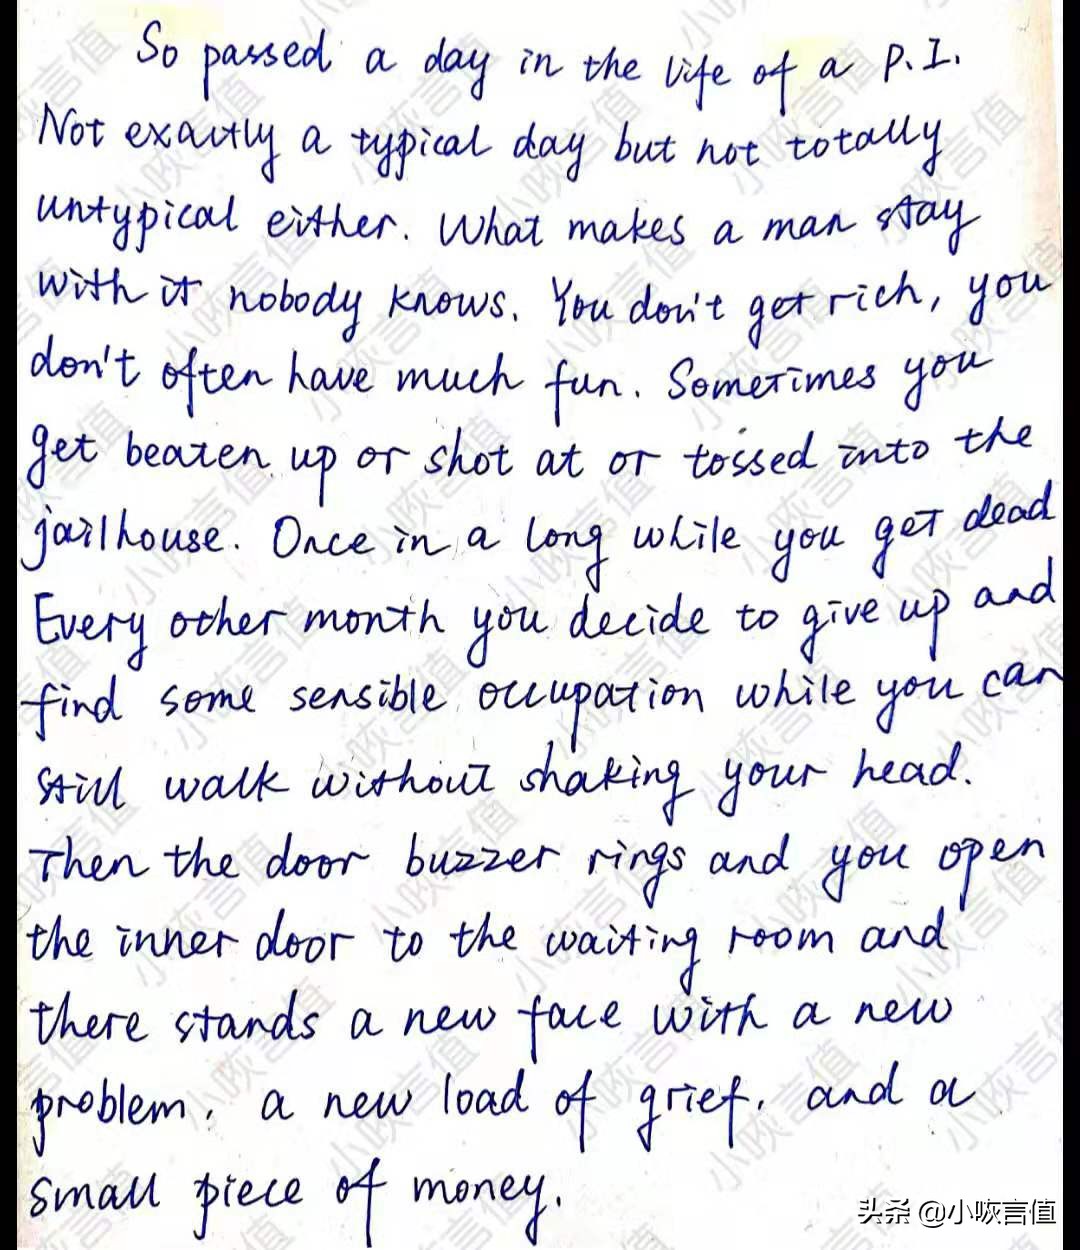 So passed a day in the life of a P.I.
Not exactly a typical day but not totally
untypical either. What makes a man stay
with it nobody knows. You don't get rich, you
don't often have much fun. Sometimes you
get beaten up or shot at or tossed into the
jailhouse. Once in a long while you get dead
Every other month you decide to give up and
find some sensible occupation while you can
still walk without shaking your head.
Then the door buzzer rings and you open
the inner door to the waiting room and
there stands a new face with a new
problem, a new load of grief, and a
small piece of money.
头条 @小咴言值